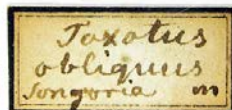 Toxotus
obliquus
Songoria m